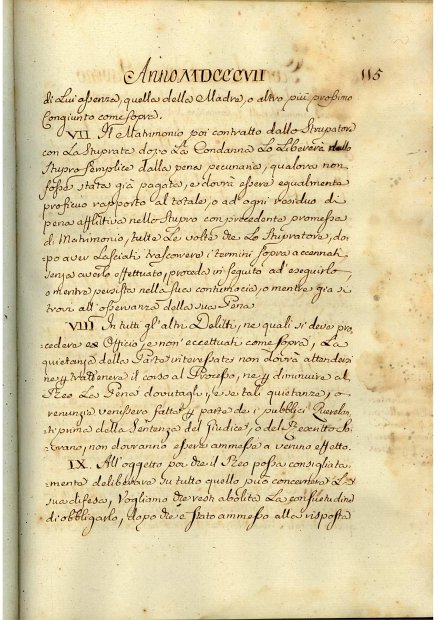 Anno MDCCCVII 115
di Lui assenza, quella della Madre, o altro più prossimo
Congiunto come sopra.
VII. Il Matrimonio poi contratto dallo Stupratore
con La Stuprata dopo La Condanna Lo Libererà dallo
Stupro semplice dalla pena pecuniaria, qualora non
fosse stata già pagata, e dovrà essere egualmente
proficuo rapporto al totale, o ad ogni residuo di
pena afflittiva nello Stupro con precedente promessa
di Matrimonio, tutte Le volte che Lo Stupratore, do-
po aver Lasciati trascorrere i termini sopra accennati
senza averlo effettuato, proceda in seguito ad eseguirlo,
o mentre persiste nella sua contumacia, o mentre già si
trovi all'osservanza della sua Pena.
VIII In tutti gl'altri Delitti, ne quali si deve pro-
cedere ex Officio, e non eccettuati come sopra, La
quietanza della Parte interessata non dovrà attendersi
ne p trattenere il corso al Processo, ne p diminuire al
Reo La Pena dovutagli, e se tali quietanze, o
renunzie venissero fatte p parte de i pubblici Querelan-
ti prima della Sentenza del Giudice, o del Rescritto So-
vrano, non dovranno essere ammesse a veruno effetto.
IX. All'oggetto poi che il Reo possa consigliata-
mente deliberare su tutto quello può concernere La
sua difesa, Vogliamo che resti abolita La consuetudine
di obbligarlo, dopo che è stato ammesso alla risposta